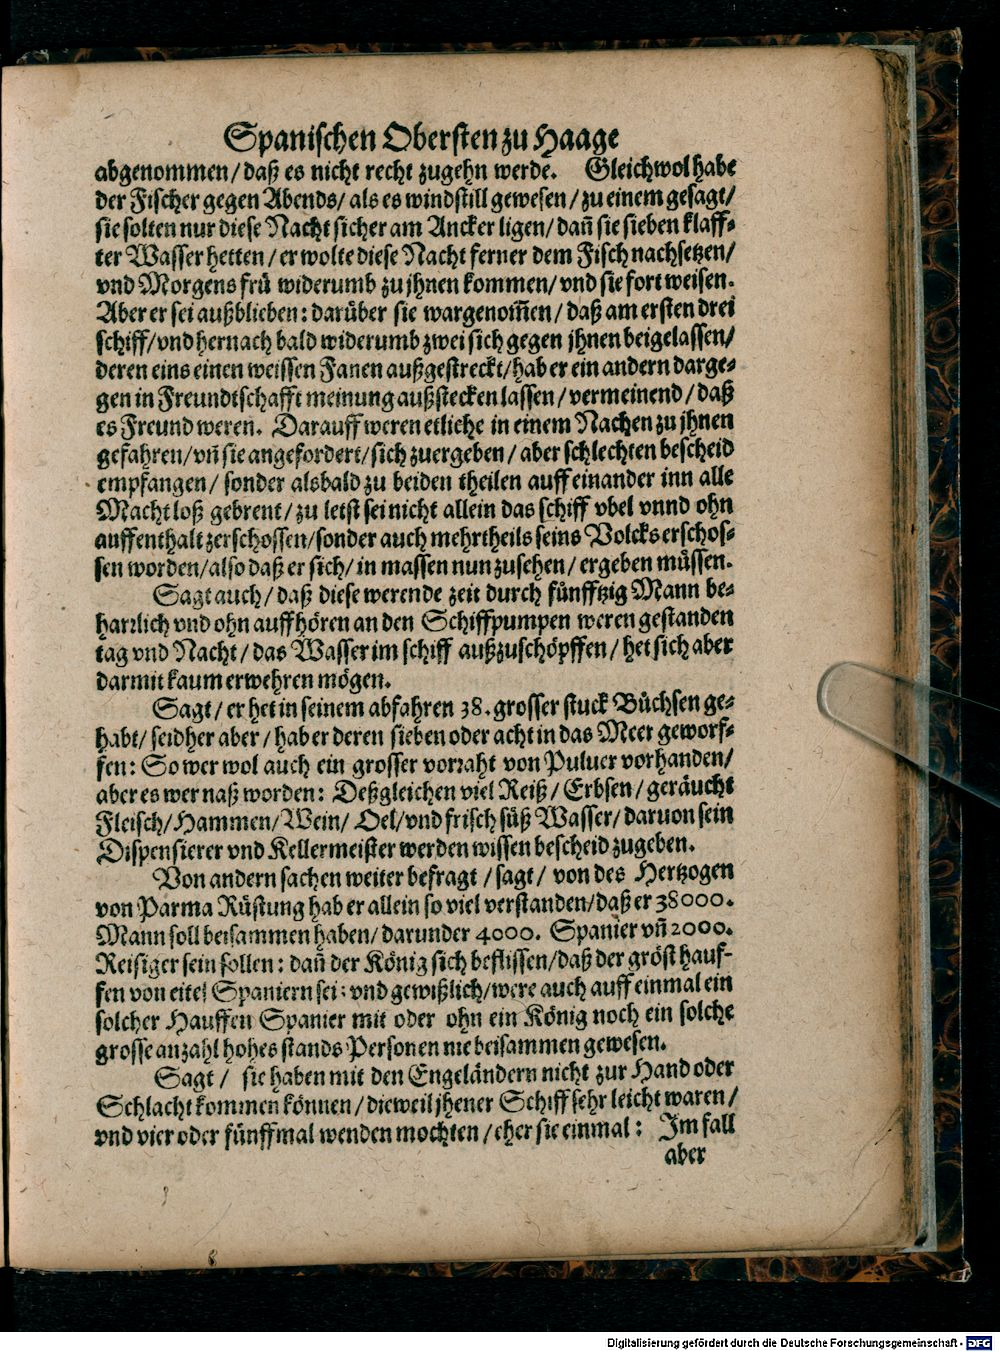 Spanischen Obersten zu Haage
abgenommen / daß es nicht recht zugehn werde. Gleichwol habe
der Fischer gegen Abends / als es windstill gewesen / zu einem gesagt /
sie solten nur diese Nacht sicher am Ancker ligen / dañ sie sieben klaff⸗
ter Wasser hetten / er wolte diese Nacht ferner dem Fisch nachsetzen /
vnd Morgens frü widerumb zu jhnen kommen / vnd sie fort weisen.
Aber er sei außblieben: darüber sie wargenom̃en / daß am ersten drei
schiff / vnd hernach bald widerumb zwei sich gegen jhnen beigelassen /
deren eins einen weissen Fanen außgestreckt / hab er ein andern darge⸗
gen in Freundtschafft meinung außstecken lassen / vermeinend / daß
es Freund weren. Darauff weren etliche in einem Nachen zu jhnen
gefahren / vñ sie angefordert / sich zuergeben / aber schlechten bescheid
empfangen / sonder alsbald zu beiden theilen auff einander inn alle
Macht loß gebrent / zu letst sei nicht allein das schiff vbel vnnd ohn
auffenthalt zerschossen / sonder auch mehrtheils seins Volcks erschos⸗
sen worden / also daß er sich / in massen nun zusehen / ergeben müssen.
Sagt auch / daß diese werende zeit durch fünfftzig Mann be⸗
harrlich vnd ohn auffhören an den Schiffpumpen weren gestanden
tag vnd Nacht / das Wasser im schiff außzuschöpffen / het sich aber
darmit kaum erwehren mögen.
Sagt / er het in seinem abfahren 38. grosser stuck Büchsen ge⸗
habt / seidher aber / hab er deren sieben oder acht in das Meer geworf⸗
fen: So wer wol auch ein grosser vorraht von Puluer vorhanden /
aber es wer naß worden: Deßgleichen viel Reiß / Erbsen / geräucht
Fleisch / Hammen / Wein / Oel / vnd frisch süß Wasser / daruon sein
Dispensierer vnd Kellermeister werden wissen bescheid zugeben.
Von andern sachen weiter befragt / sagt / von des Hertzogen
von Parma Rüstung hab er allein so viel verstanden / daß er 38000.
Mann soll beisammen haben / darunder 4000. Spanier vñ 2000.
Reisiger sein sollen: dañ der König sich beflissen / daß der gröst hauf⸗
fen von eitel Spaniern sei: vnd gewißlich / were auch auff einmal ein
solcher Hauffen Spanier mit oder ohn ein König noch ein solche
grosse anzahl hohes stands Personen nie beisammen gewesen.
Sagt / sie haben mit den Engeländern nicht zur Hand oder
Schlacht kommen können / dieweil jhener Schiff sehr leicht waren /
vnd vier oder fünffmal wenden mochten / eher sie einmal: Im fall
aber
Digitalisierung gefördert durch die Deutsche Forschungsgemeinschaft - DFG